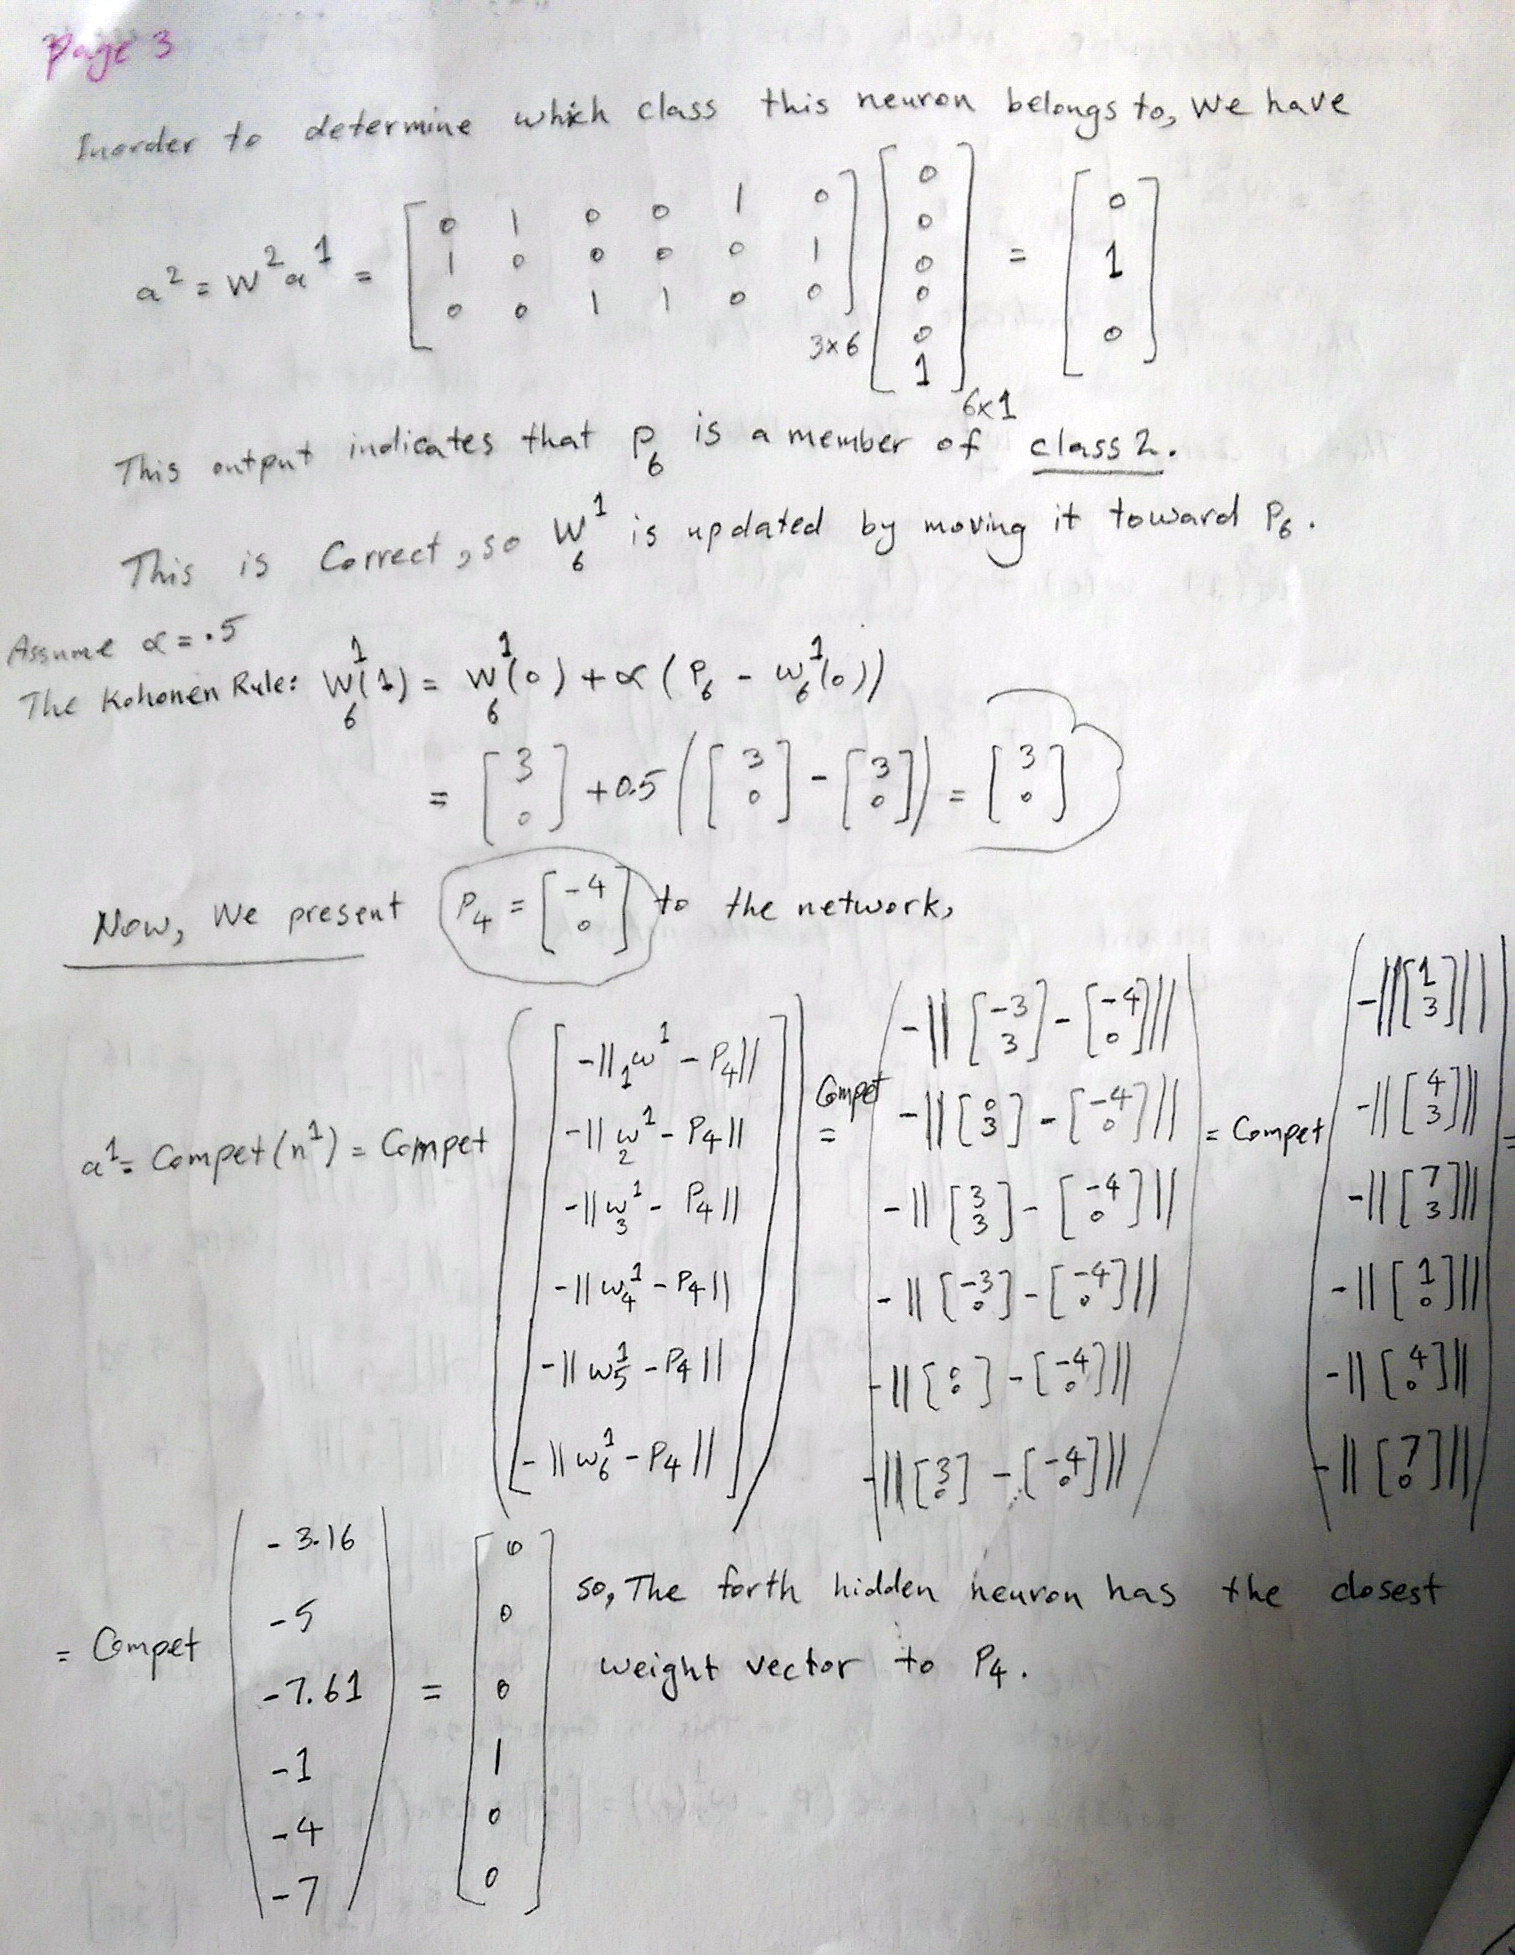 Page 3
Inorder to determine which class this neuron belongs to, we have
a² = W² a¹ = [0 1 0 0 1 0; 1 0 0 0 0 1; 0 0 1 1 0 0] 3×6 [0; 0; 0; 0; 0; 1] 6×1 = [0; 1; 0]
This output indicates that P₆ is a member of class 2.
This is Correct, so ₆W¹ is updated by moving it toward P₆.
Assume α = .5
The Kohonen Rule: ₆W¹(1) = ₆W¹(0) + α (P₆ - ₆w¹(0))
= [3; 0] + 0.5 ([3; 0] - [3; 0]) = [3; 0]
Now, We present P₄ = [-4; 0] to the network,
a¹ = Compet(n¹) = Compet ([-||₁w¹ - P₄||; -||₂w¹ - P₄||; -||₃w¹ - P₄||; -||w₄¹ - P₄||; -||w₅¹ - P₄||; -||w₆¹ - P₄||]) = Compet (-||[-3; 3] - [-4; 0]||; -||[0; 3] - [-4; 0]||; -||[3; 3] - [-4; 0]||; -||[-3; 0] - [-4; 0]||; -||[0; 0] - [-4; 0]||; -||[3; 0] - [-4; 0]||) = Compet (-||[1; 3]||; -||[4; 3]||; -||[7; 3]||; -||[1; 0]||; -||[4; 0]||; -||[7; 0]||) =
= Compet (-3.16; -5; -7.61; -1; -4; -7) = [0; 0; 0; 1; 0; 0]
so, The forth hidden neuron has the closest
weight vector to P₄.